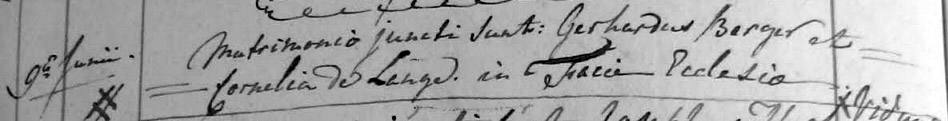 9ª Junii. Matrimonio juncti sunt: Gerhardus Berger et
Cornelia de Lange. in Facie Ecclesia